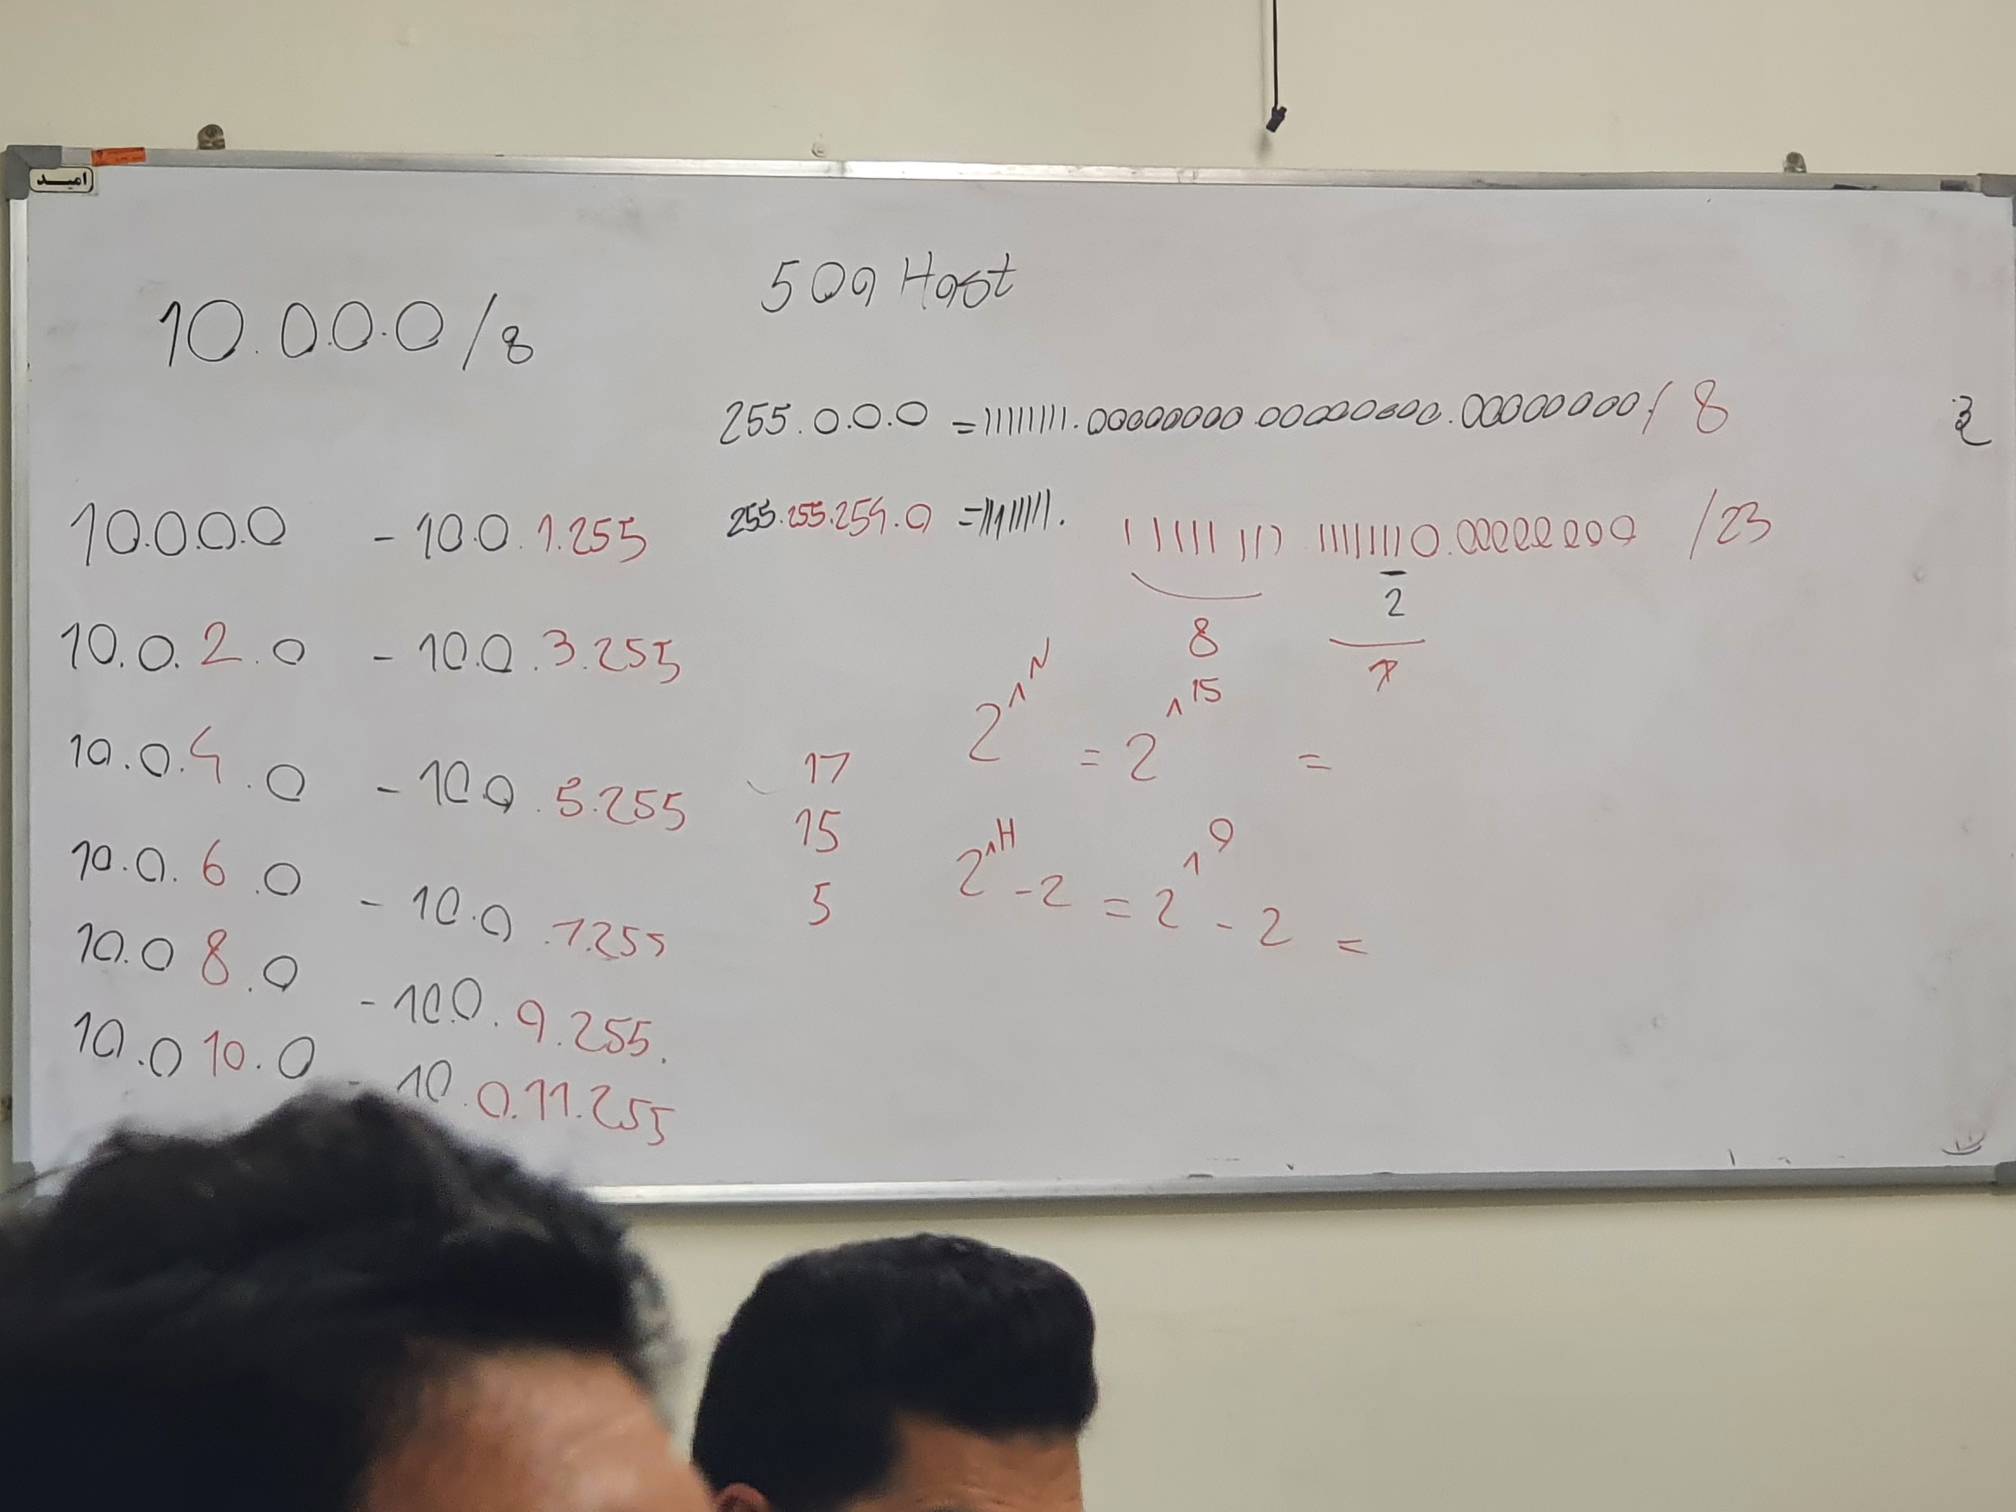 امید
10.0.0.0/8
500 Host
255.0.0.0 = 11111111.00000000.00000000.00000000/8
255.255.254.0 = 11111111. 11111111 11111110.00000000 /23
2
8
7
10.0.0.0 - 10.0.1.255
10.0.2.0 - 10.0.3.255
10.0.4.0 - 10.0.5.255
10.0.6.0 - 10.0.7.255
10.0 8.0 - 10.0.9.255.
10.0 10.0 - 10.0.11.255
17
15
5
2^N = 2^15 =
2^H - 2 = 2^9 - 2 =